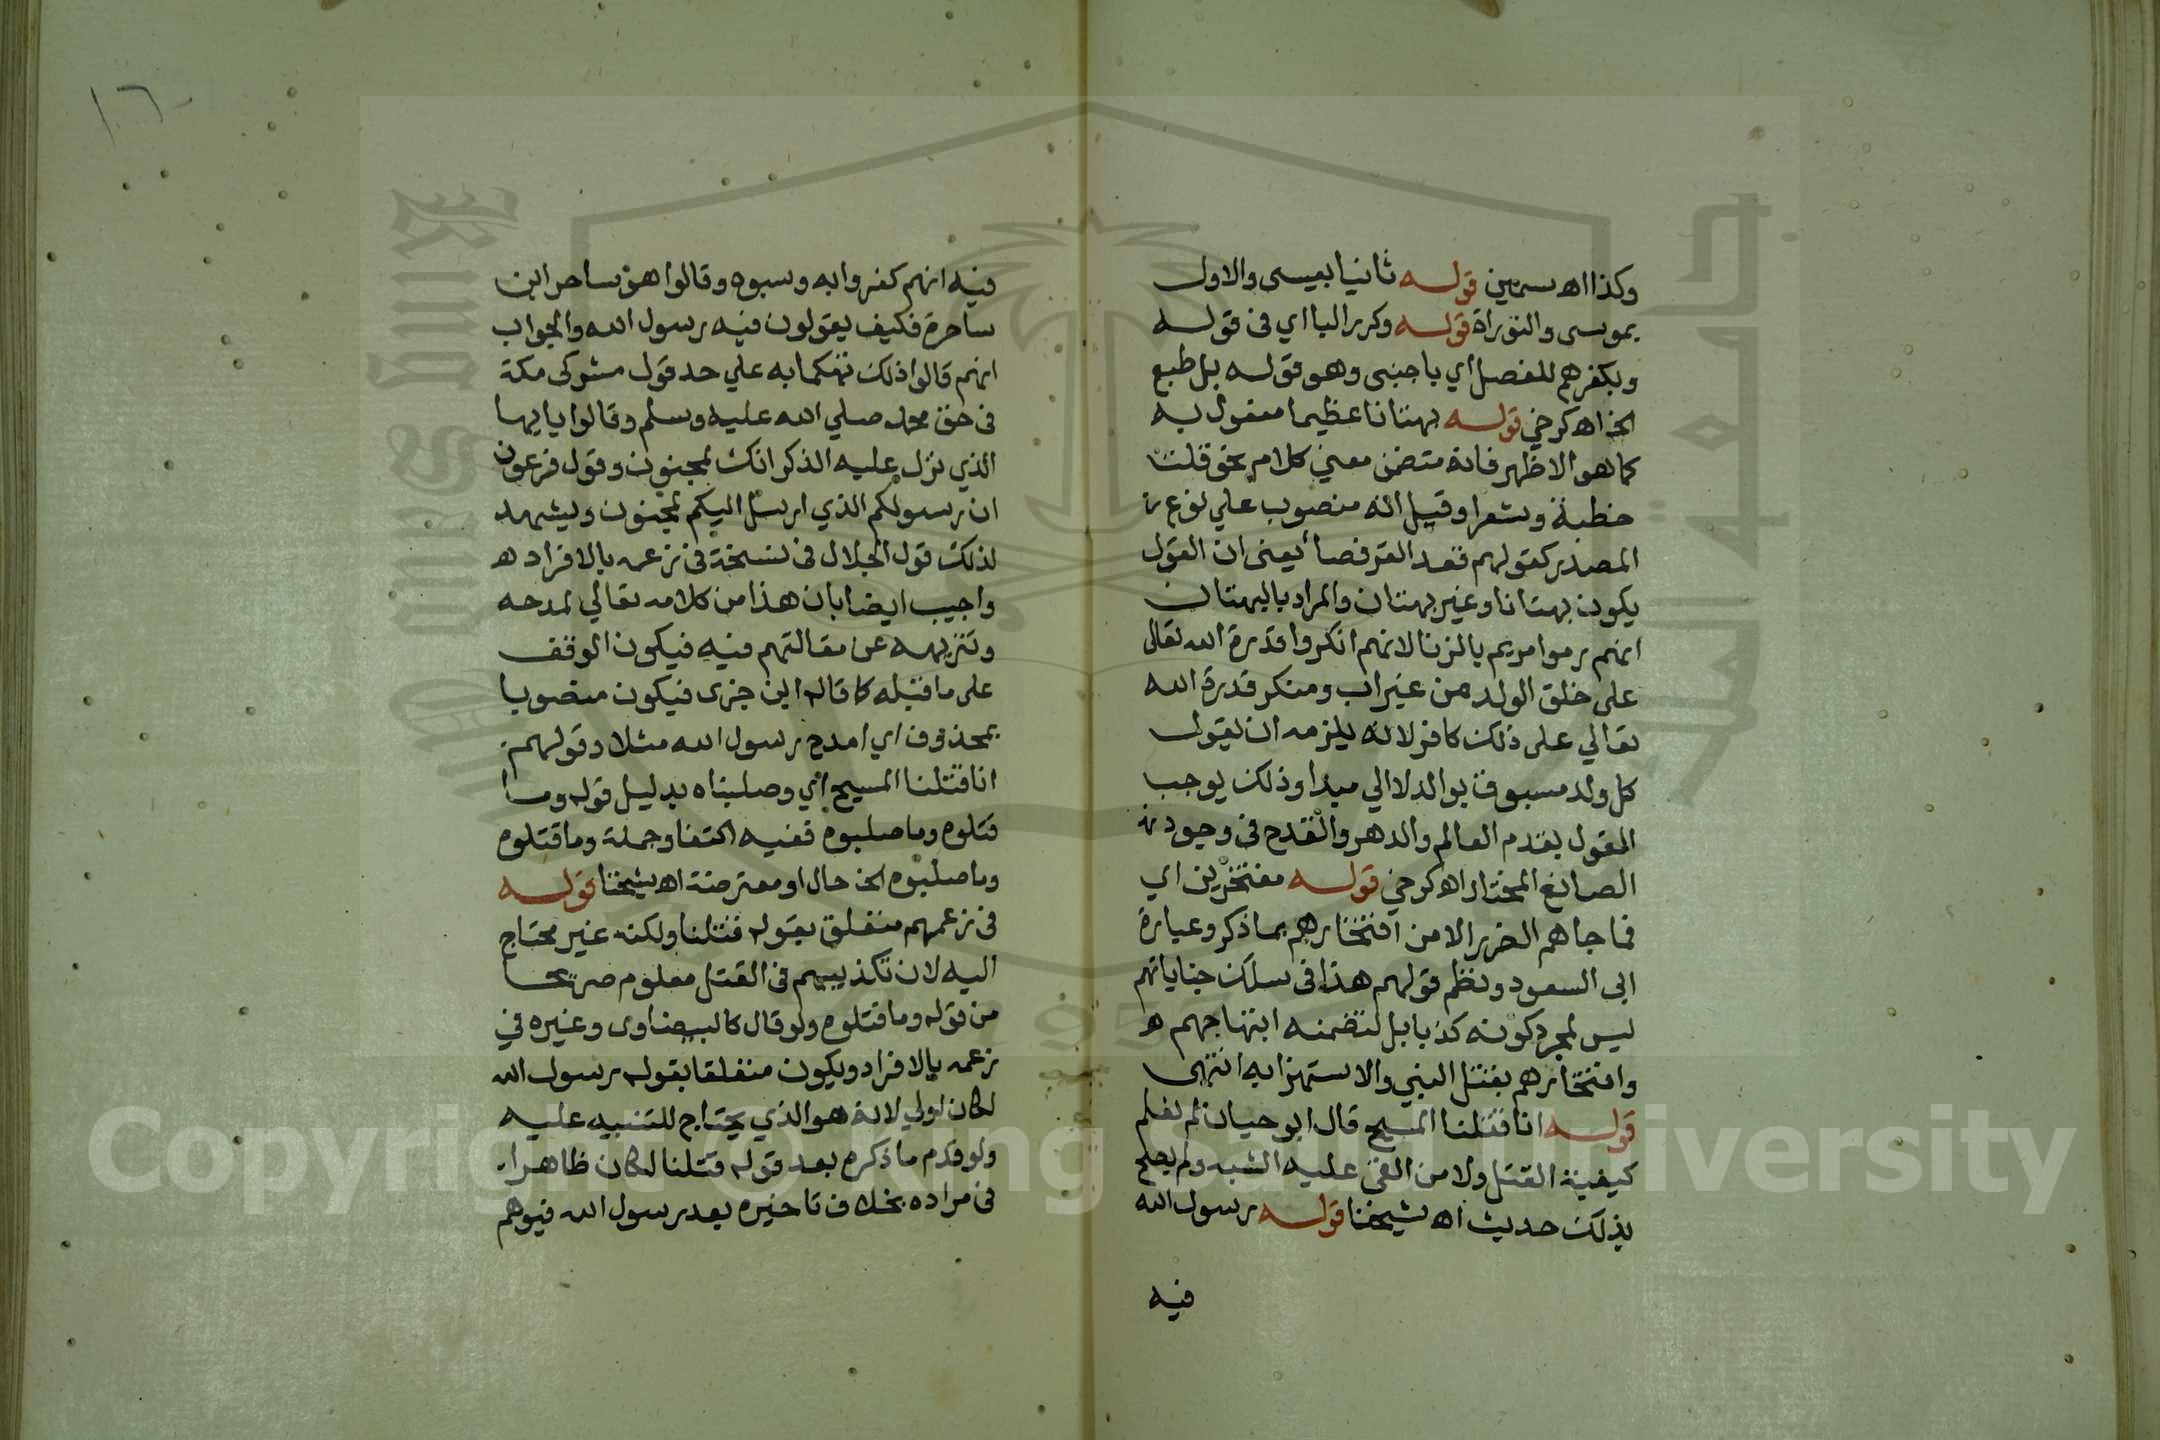 وكذا اه سمين قوله ثانيا بعيسى والاول
بموسى والتوراة قوله وكرر البا اي في قوله
وبكفرهم للفصل اي باجنبى وهو قوله بل طبع
الخ اه كرخي قوله بهتانا عظيما مفعول به
كما هو الاظهر فانه متضمن معنى كلام نحو قلت
خطبة وشعرا وقيل انه منصوب علي نوع
المصدر كقولهم قعد القرفصا يعنى ان القول
يكون بهتانا وغير بهتان والمراد بالبهتان
انهم رموا مريم بالزنا لانهم انكروا قدرة الله تعالى
على خلق الولد من غير اب ومنكر قدرة الله
تعالي على ذلك كافر لانه يلزمه ان يقول
كل ولد مسبوق بوالد لا الي مبدا وذلك يوجب
القول بقدم العالم والدهر والقدح في وجود
الصانع المختار اه كرخي قوله مفتخرين اي
فما جاهم الضرر الا من افتخارهم بما ذكر وعبارة
ابى السعود ونظم قولهم هذا في سلك جناياتهم
ليس لمجرد كونه كذبا بل لتضمنه ابتهاجهم
وافتخارهم بقتل النبي والاستهزا به انتهى
قوله انا قتلنا المسيح قال ابو حيان لم نعلم
كيفية القتل ولا من القي عليه الشبه ولم يصح
بذلك حديث اه شيخنا قوله رسول الله
فيه
١٦
فيه انهم كفروا به وسبوه وقالوا هو ساحر ابن
ساحرة فكيف يقولون فيه رسول الله والجواب
انهم قالوا ذلك تهكما به علي حد قول مشركى مكة
في حق محمد صلي الله عليه وسلم وقالوا يا ايها
الذي نزل عليه الذكر انك لمجنون وقول فرعون
ان رسولكم الذي ارسل اليكم لمجنون ويشهد
لذلك قول الجلال في نسخة في زعمه بالافراد
واجيب ايضا بان هذا من كلامه تعالي لمدحه
وتنزيهه عن مقالتهم فيه فيكون الوقف
على ما قبله كما قاله ابن جزى فيكون منصوبا
بمحذوف اي امدح رسول الله مثلا وقولهم
انا قتلنا المسيح اي وصلبناه بدليل قوله وما
قتلوه وما صلبوه ففيه اكتفا وجملة وما قتلوه
وما صلبوه الخ حال او معترضة اه شيخنا قوله
في زعمهم متعلق بقوله قتلنا ولكنه غير محتاج
اليه لان تكذيبهم في القتل معلوم صريحا
من قوله وما قتلوه ولو قال كالبيضاوى وغيره في
زعمه بالافراد ويكون متعلقا بقوله رسول الله
لكان اولي لانه هو الذي يحتاج للتنبيه عليه
ولو قدم ما ذكره بعد قوله قتلنا لكان ظاهرا
في مراده بخلاف تاخيره بعد رسول الله فيوهم
Copyright © King Saud University